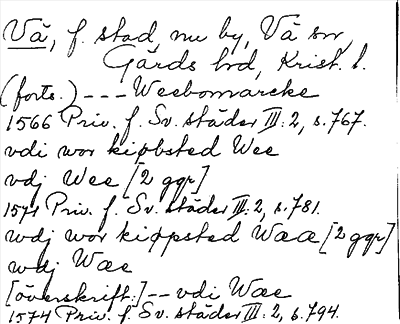 Vä, f. stad, nu by, Vä sn,
Gärds hd, Krist. l.
(forts.) --- Weebomarcke
1566 Priv. f. Sv. städer III:2, s.767.
vdi wor kiøbsted Wee
vdj Wee [2 ggr]
1571 Priv. f. Sv. städer III:2, s.781.
wdj wor kiøpsted Waa [2 ggr]
wdj Wæ
[överskrift:] -- vdi Wæ
1574 Priv. f. Sv. städer III:2, s.794.